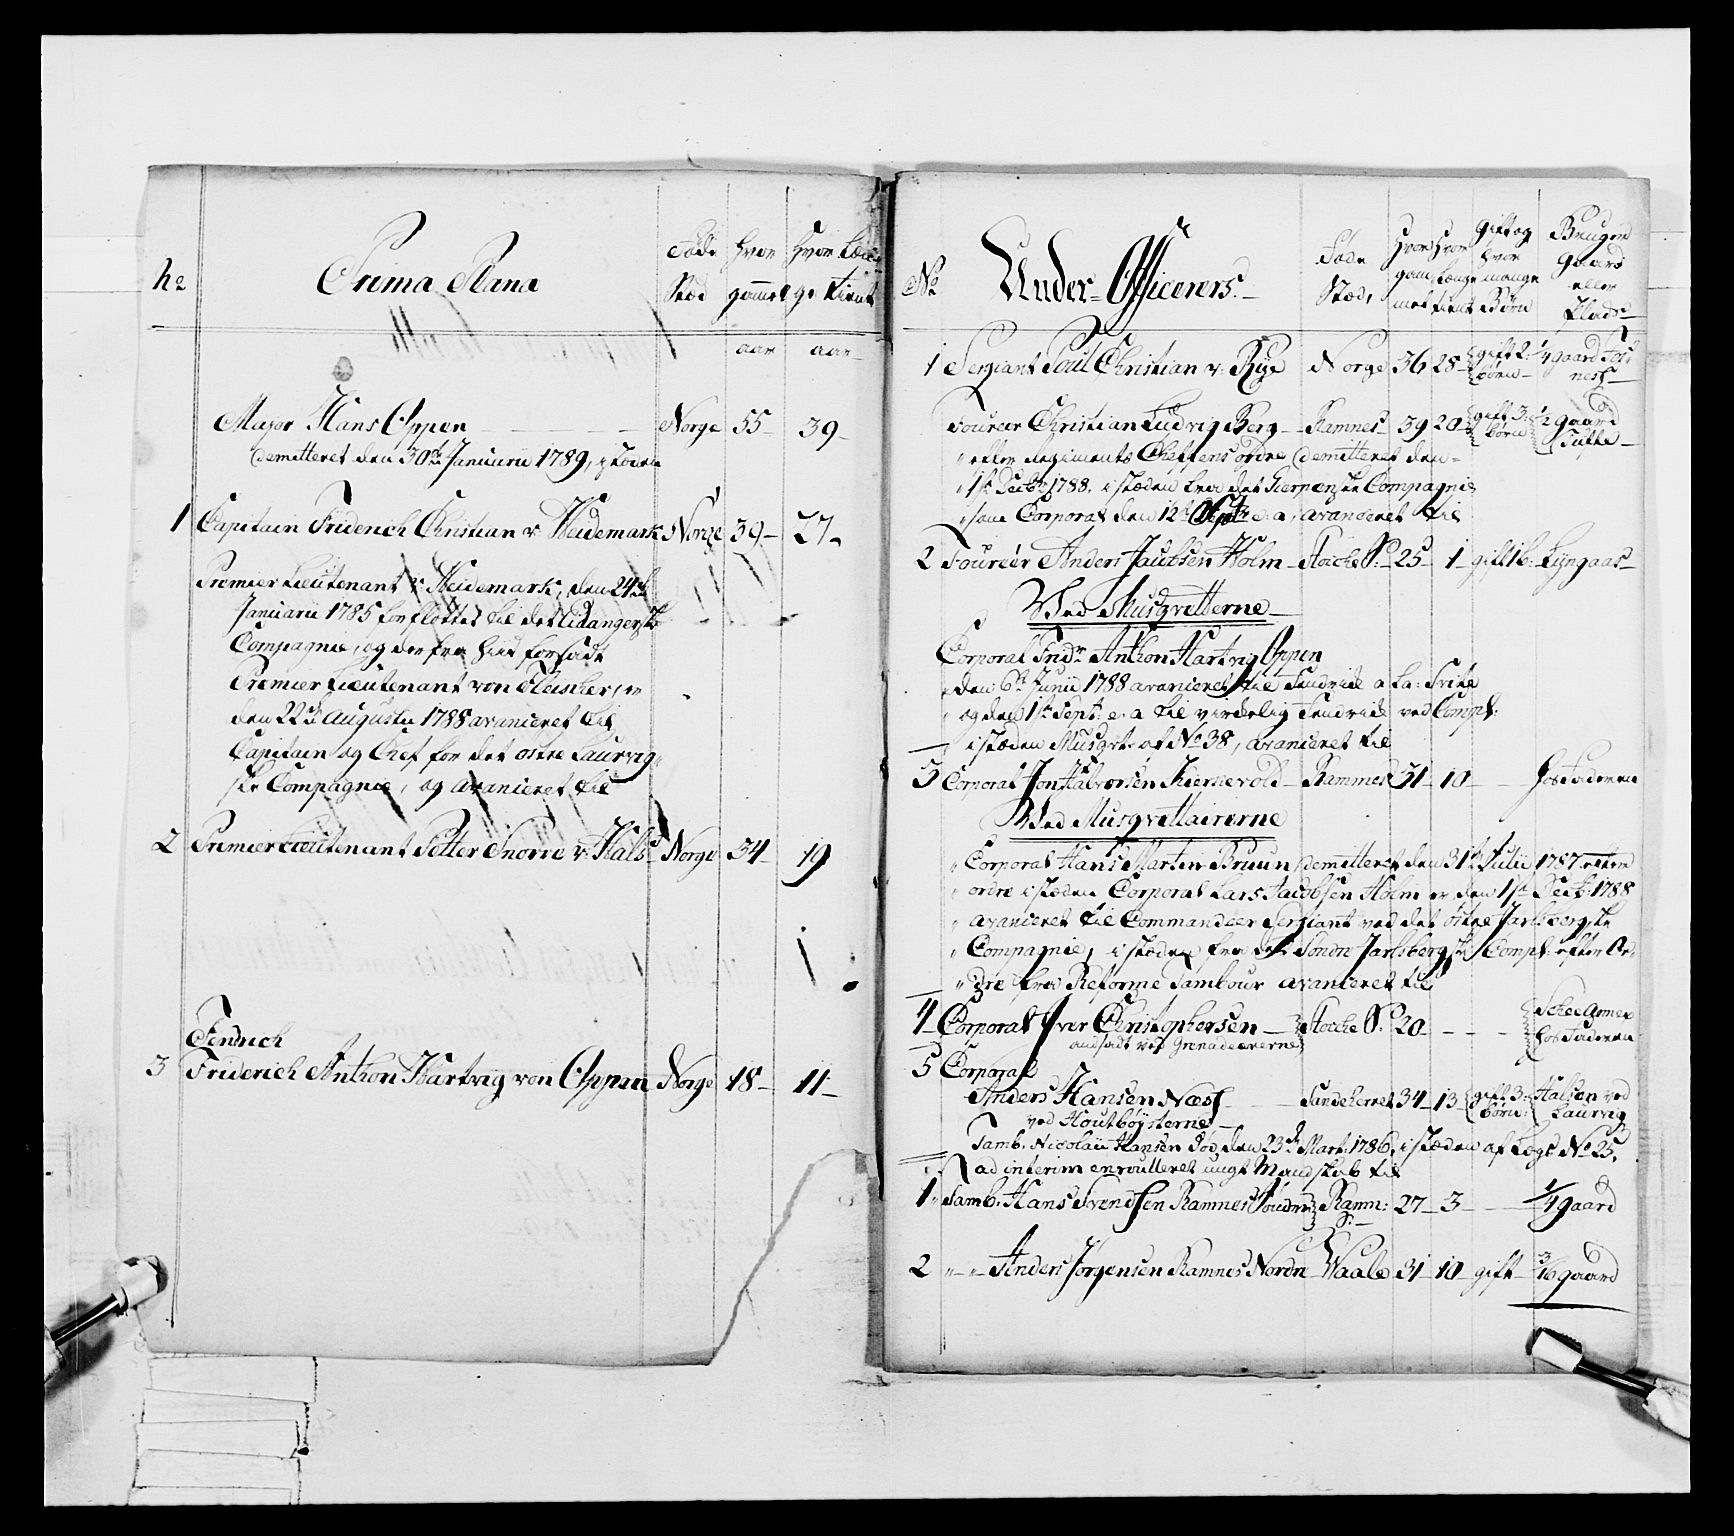 No
Prima Plana
Føde Stæd
Hvor gammel
Hvor længe tient
aar
aar
Major Hans Oppen Norge 55 39
demitteret den 30te Januarii 1789, i stæden
1 Capitain Friderich Christian v. Heidemark Norge 39 27
Premier Lieutenant v: Heidemark, den 24de
Januarii 1785 forfløttet til det Eidangerske
Compagnie, og derfra hiid forsadt
Premier Lieutenant von Fleischer, er
den 22de Augustii 1788 avancieret til
Capitain og Chef for det østre Laurvig-
ske Compagnie, og avancieret til
2 Premier Lieutenant Petter Snorre v: Hals Norge 34 19
Fendrich
3 Friderich Anthon Hartvig von Oppen Norge 18 11
No
Under-Officerers.
Føde Stæd,
Hvor gammel
Hvor længe tient
Gift og hvor mange Børn
Bruger gaard eller Plads
1 Sergiant Poul Christian v: Rye Norge 36 28 gift 2: børn 1/4 gaard
Foureer Christian Ludvig Berg Ramnes 39 20 gift 3: børn 1/2 gaard
efter Regiments Cheffens ordre demitteret den
1ste Decbr 1788. i stæden fra det Gierpenske Compagnie
som Corporal den 12te Septbr e: a, avancieret til
2 Foureer Anders Jacobsen Holm Stocke S: 25 1 gift 1 b: Lyngaas
Ved Musqvetterne
Corporal Fridr Anthon Hartvig Oppen
den 6te Junii 1788 avancieret til Fendrich a la: Svite
og den 1ste Sept: e. a til virkelig Fendrich ved Comp:
i stæden Musqt: af No 38, avancieret til
3 Corporal Jon Halvorsen Kiernevold Ramnes 31 10 hos Faderen
Ved Musqvettairerne
Corporal Hans Martin Bruun demitteret den 31te Julii 1787 efter
ordre i stæden Corporal Lars Jacobsen Holm er den 1ste Decb: 1788
avancieret til Commandeer Sergiant ved det østre Jarlsbergske
Compagnie, i stæden fra det Søndre Jarlsbergske Comp: efter Or-
dre fra Reforme Tambour avancieret til
4 Corporal Iver Christophersen Stocke S: 20 hos Faderen
ansadt ved Grenadeererne
5 Corporal
Anders Hansen Næss Sandeherret 34 13 gift 3: børn: Halsen ved Laurvig
ved Houtboysterne
Tamb. Nicolaii Hansen Død den 23de Mart: 1786, i stæden af Legd No 25,
ad interim enroulleret ungt Mandskab til
1 Tamb. Hans Svendsen Ramnes Søndre Ramn: S: 27 3 1/4 gaard
2 " " Anders Jørgensen Ramnes Nordre Vaale 31 10 gift 3/16 gaard